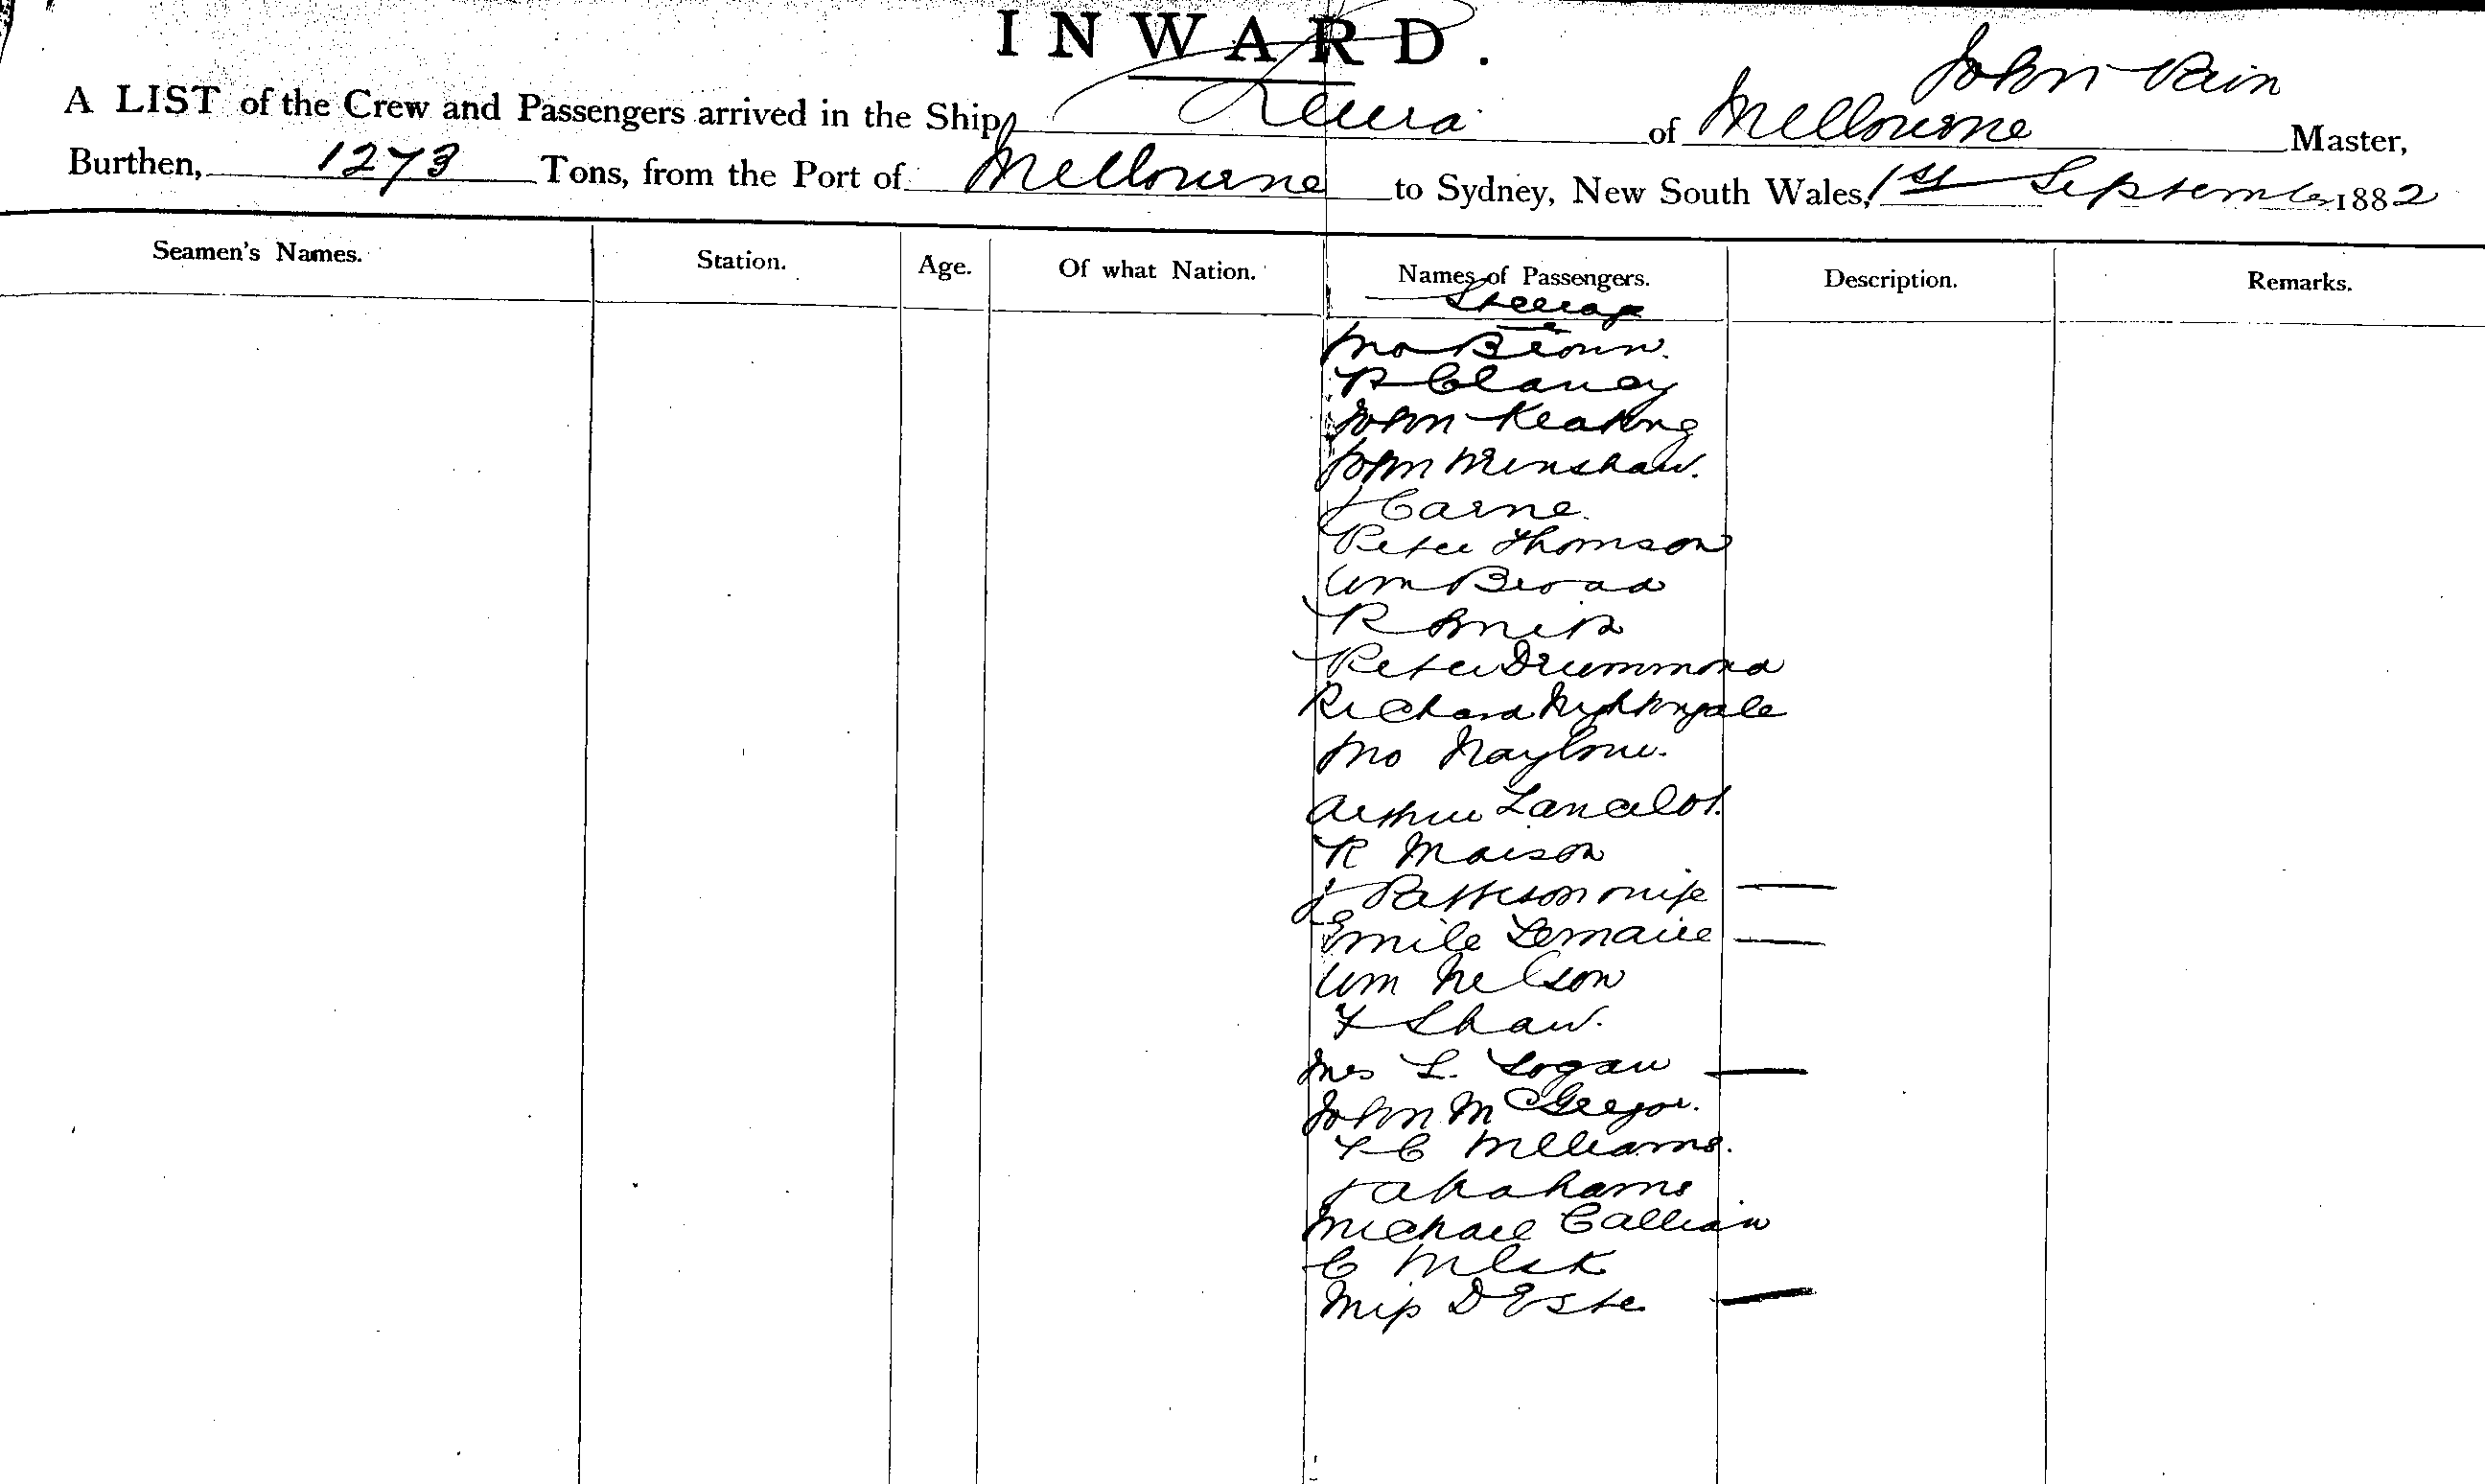 INWARD.
John Pain
A LIST of the Crew and Passengers arrived in the Ship Leura of Melbourne Master,
Burthen, 1273 Tons, from the Port of Melbourne to Sydney, New South Wales, 1st September 1882
Seamen's Names. Station. Age. Of what Nation. Names of Passengers. Description. Remarks.
Steerage
Jno Brown.
P Clancy
John Keating
John Menshaw.
J Carne.
Peter Thomson
Wm Broad
R
Peter Drummond
Richard Nightingale
Jno
Arthur Lancelot.
R Maison
J Patterson wife —
Emile Lemaire —
Wm Nelson
F Shaw.
Mrs L. Logan —
John McGregor.
T C Williams.
J Abrahams
Michael
C
Miss D Este —